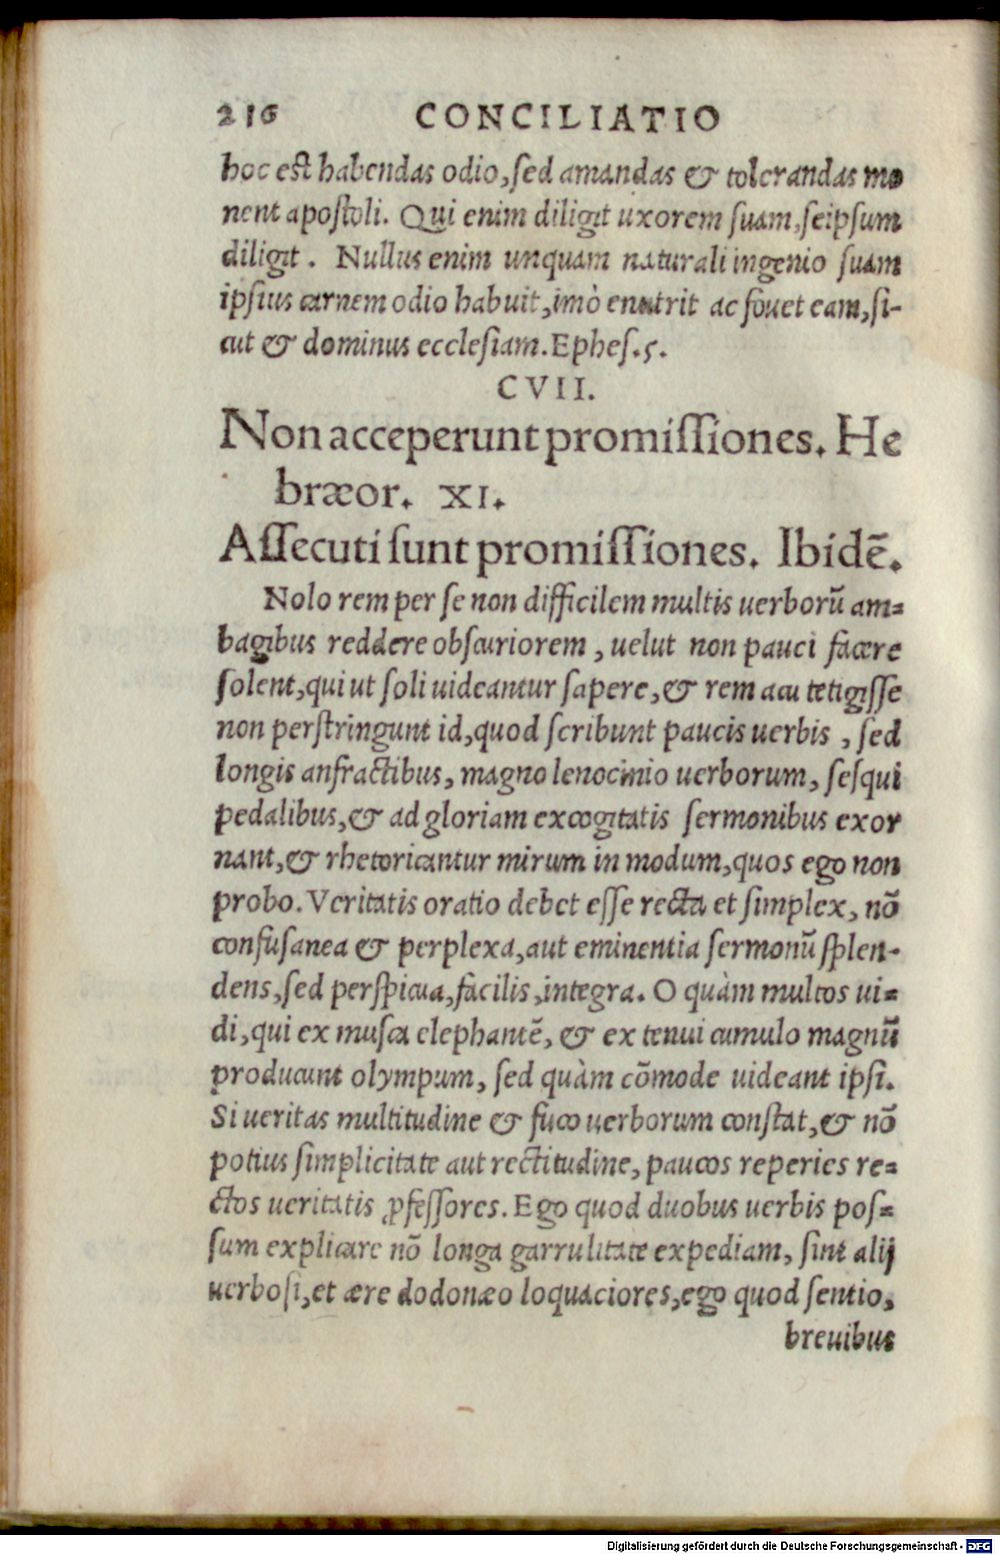 216 CONCILIATIO
hoc est habendas odio, sed amandas & tolerandas mo
nent apostoli. Qui enim diligit uxorem suam, seipsum
diligit. Nullus enim unquam naturali ingenio suam
ipsius carnem odio habuit, imò enutrit ac fouet eam, si-
cut & dominus ecclesiam. Ephes. 5.
CVII.
Non acceperunt promissiones. He
bræor. XI.
Assecuti sunt promissiones. Ibidē.
Nolo rem per se non difficilem multis uerborū am-
bagibus reddere obscuriorem, uelut non pauci facere
solent, qui ut soli uideantur sapere, & rem acu tetigisse
non perstringunt id, quod scribunt paucis uerbis, sed
longis anfractibus, magno lenocinio uerborum, sesqui
pedalibus, & ad gloriam excogitatis sermonibus exor
nant, & rhetoricantur mirum in modum, quos ego non
probo. Veritatis oratio debet esse recta et simplex, nō
confusanea & perplexa, aut eminentia sermonū splen-
dens, sed perspicua, facilis, integra. O quàm multos ui-
di, qui ex musca elephantē, & ex tenui cumulo magnū
producunt olympum, sed quàm cōmode uideant ipsi.
Si ueritas multitudine & fuco uerborum constat, & nō
potius simplicitate aut rectitudine, paucos reperies re-
ctos ueritatis ꝓfessores. Ego quod duobus uerbis pos-
sum explicare nō longa garrulitate expediam, sint alij
uerbosi, et ære dodonæo loquaciores, ego quod sentio,
breuibus
Digitalisierung gefördert durch die Deutsche Forschungsgemeinschaft - DFG